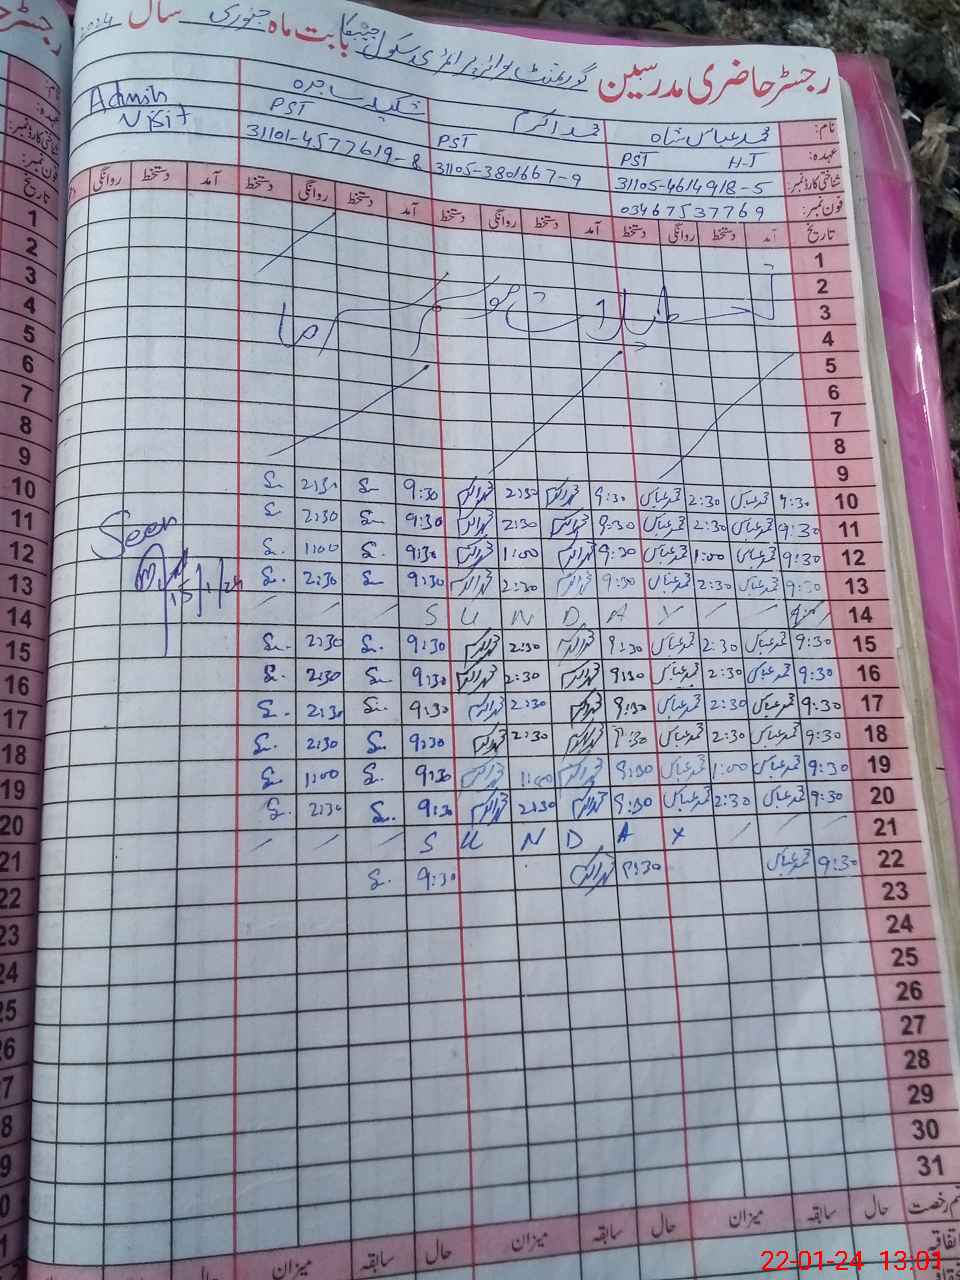 رجسٹر حاضری مدرسین گورنمنٹ بوائز پرائمری سکول بابت ماہ جنوری سال
نام: محمد عباس شاہ محمد اکرم شکیلہ ساجدہ Admin Visit
عہدہ: PST H.T PST PST
شناختی کارڈ نمبر: 31105-4614918-5 31105-3801667-9 31101-4577619-8
فون نمبر: 03467537769
تاریخ آمد دستخط روانگی دستخط آمد دستخط روانگی دستخط آمد دستخط روانگی دستخط آمد دستخط روانگی
1
2
3
4
5
6
7
8
9
10 9:30 محمد عباس 2:30 محمد عباس 9:30 محمد اکرم 2:30 محمد اکرم 9:30 2:30
11 9:30 محمد عباس 2:30 محمد عباس 9:30 محمد اکرم 2:30 محمد اکرم 9:30 2:30 Seen
12 9:30 محمد عباس 1:00 محمد عباس 9:30 محمد اکرم 1:00 محمد اکرم 9:30 1:00
13 9:30 محمد عباس 2:30 محمد عباس 9:30 محمد اکرم 2:30 محمد اکرم 9:30 2:30 15/1/24
14 S U N D A Y
15 9:30 محمد عباس 2:30 محمد عباس 9:30 محمد اکرم 2:30 محمد اکرم 9:30 2:30
16 9:30 محمد عباس 2:30 محمد عباس 9:30 محمد اکرم 2:30 محمد اکرم 9:30 2:30
17 9:30 محمد عباس 2:30 محمد عباس 9:30 محمد اکرم 2:30 محمد اکرم 9:30 2:30
18 9:30 محمد عباس 2:30 محمد عباس 9:30 محمد اکرم 2:30 محمد اکرم 9:30 2:30
19 9:30 محمد عباس 1:00 محمد عباس 9:30 محمد اکرم 1:00 محمد اکرم 9:30 1:00
20 9:30 محمد عباس 2:30 محمد عباس 9:30 محمد اکرم 2:30 محمد اکرم 9:30 2:30
21 S U N D A Y
22 9:30 محمد عباس 9:30 محمد اکرم 9:30
23
24
25
26
27
28
29
30
31
رخصت حال سابقہ میزان حال سابقہ میزان حال سابقہ میزان حال
22-01-24 13:01